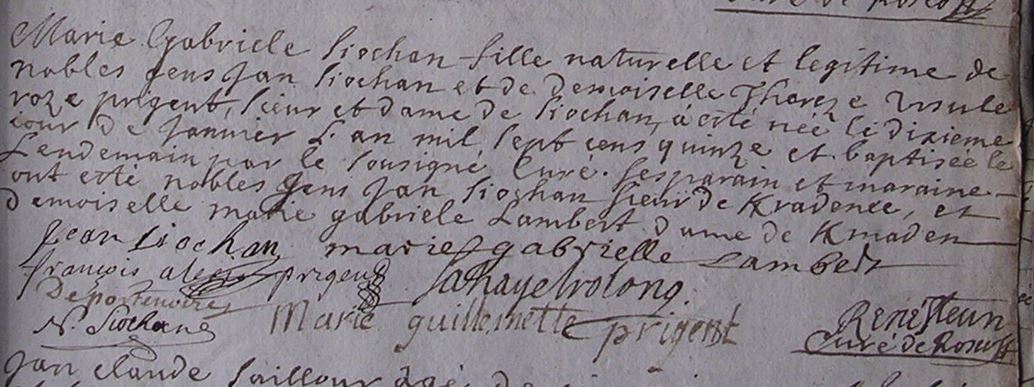 Curé de Roscoff
Marie Gabriele Siochan fille naturelle et legitime de
nobles gens Jan Siochan et de demoiselle Thereze Ursule
roze prigent, sieur et dame de Siochan, a esté née le dixieme
iour de Janvier L'an mil sept cens quinze et baptisée le
Lendemain par le sousigné Curé. ses parain et maraine
ont esté nobles gens Jan Siochan sieur de Kradence, et
demoiselle marie gabriele Lambert dame de Kmaden
Jean Siochan marie gabrielle Lambert
françois prigent
N. Siochan Marie guillemette prigent
Curé de Roscoff
Jan claude Saillour âgé de